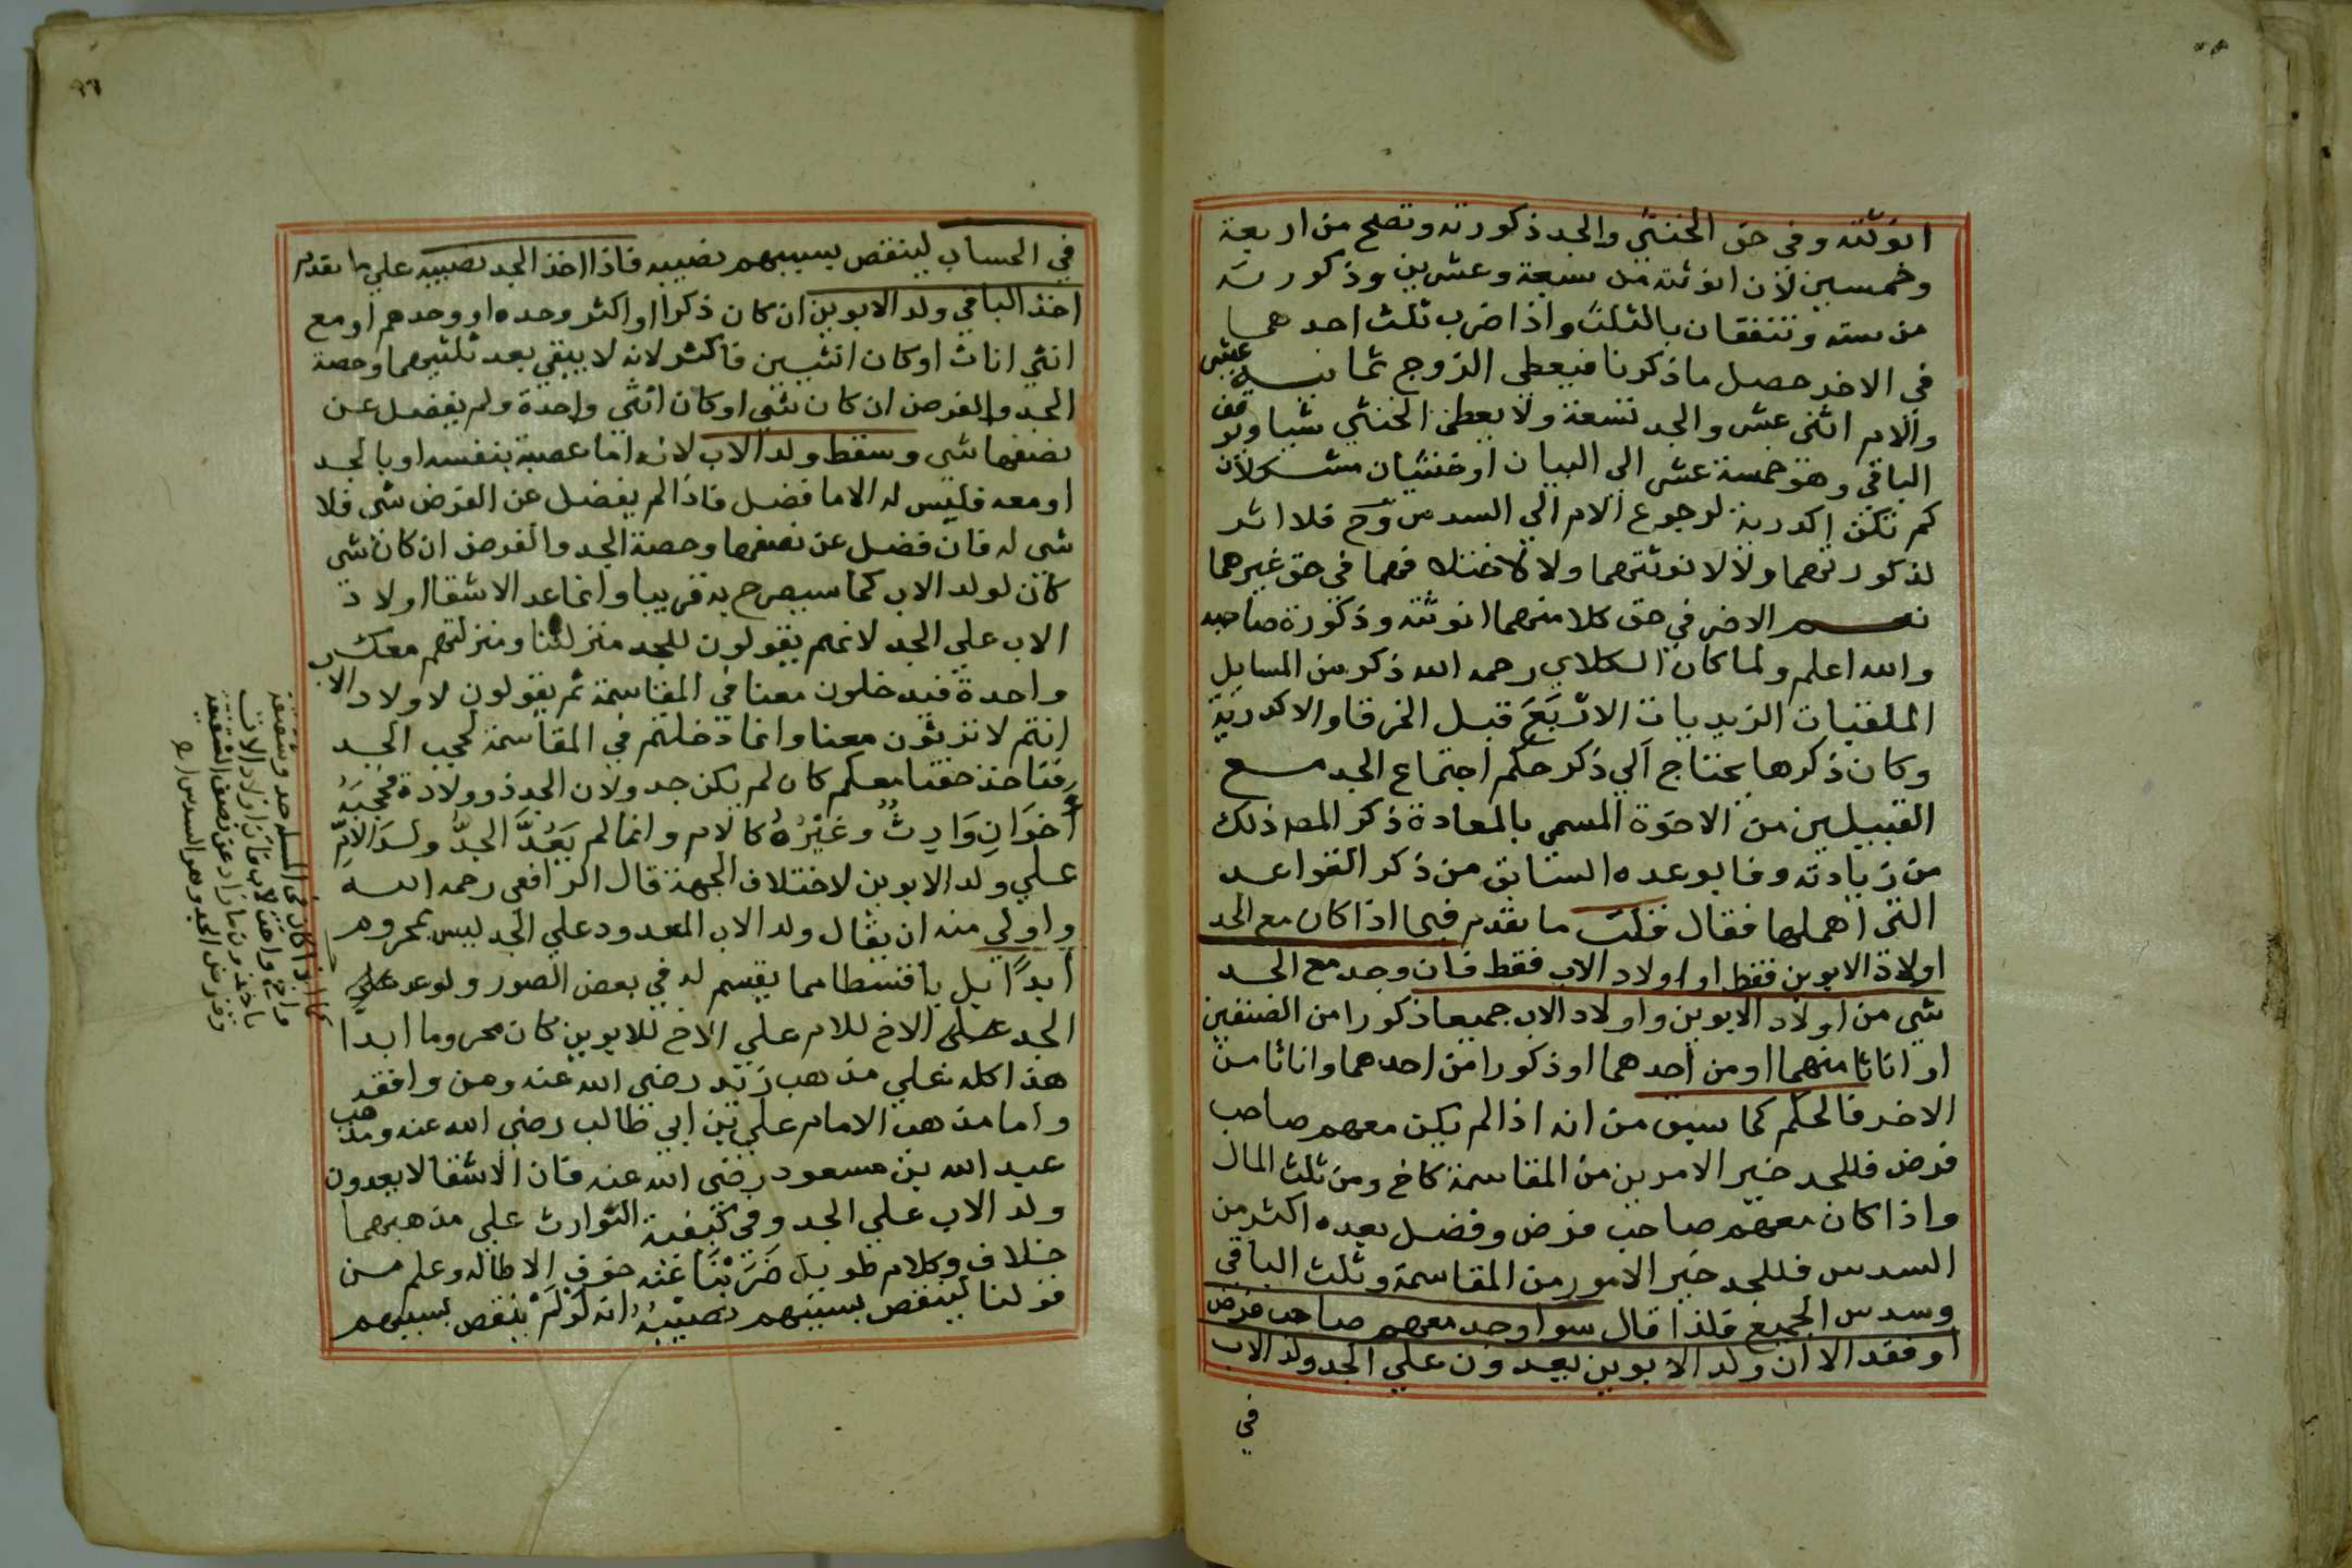 انوثته وفي حق الخنثي والجد ذكورته وتصلح من اربعة
وخمسين لان انوثته من سبعة وعشرين وذكورته
من سته وتتفقان بالثلث واذا ضرب ثلث احدهما
في الاخر حصل ما ذكرنا فيعطي الزوج ثمانية عشر
والام اثني عشر والجد تسعة ولا يعطي الخنثي شيا ويوقف
الباقي وهو خمسة عشر الي البيان او خنثيان مشكلان
لم تكن اكدرية لرجوع الام الي السدس وح فلا اثر
لذكورتهما ولا لانوثتهما ولا لاختلافهما في حق غيرهما
نعم الاضر في حق كلا منهما انوثته وذكورة صاحبه
والله اعلم ولما كان الكلاي رحمه الله ذكر من المسايل
الملقبات الزيديات الاربع قبل الخرقا والاكدرية
وكان ذكرها يحتاج الي ذكر حكم اجتماع الجد مع
القبيلين من الاخوة المسمي بالمعادة ذكر المص ذلك
من زيادته وفا بوعده السابق من ذكر القواعد
التي اهملها فقال قلت ما تقدم فيما اذا كان مع الجد
اولاد الابوين فقط او اولاد الاب فقط فان وجد مع الجد
شي من اولاد الابوين واولاد الاب جميعا ذكورا من الصنفين
او اناثا منهما او من احدهما او ذكورا من احدهما واناثا من
الاخر فالحكم كما سبق من انه اذا لم يكن معهم صاحب
فرض فللجد خير الامرين من المقاسمة كاخ ومن ثلث المال
واذا كان معهم صاحب فرض وفضل بعده اكثر من
السدس فللجد خير الامور من المقاسمة وثلث الباقي
وسدس الجميع فلذا قال سوا وجد معهم صاحب فرض
او فقد الا ان ولد الابوين يعدون علي الجد ولد الاب
في
في الحساب لينقص بسببهم نصيبه فاذا اخذ الجد نصيبه علي ما تقدم
اخذ الباقي ولد الابوين ان كان ذكرا او اكثر وحده او وحدهم او مع
انثي اناث او كان انثيين فاكثر لانه لا يبقي بعد ثلثيهما وحصة
الجد والفرض ان كان شي او كان انثي واحدة ولم يفضل عن
نصفها شي وسقط ولد الاب لانه اما عصبة بنفسه او بالجد
او معه فليس له الا ما فضل فاذا لم يفضل عن الفرض شي فلا
شي له فان فضل عن نصفها وحصة الجد والفرض ان كان شي
كان لولد الاب كما سيصرح به قريبا وانما عد الاشقا اولاد
الاب علي الجد لانهم يقولون للجد منزلتنا ومنزلتهم معك
واحدة فيدخلون معنا في المقاسمة ثم يقولون لاولاد الاب
انتم لا ترثون معنا وانما دخلتم في المقاسمة لحجب الجد
فناخذ حقنا معكم كان لم يكن جد ولان الجد ذو ولادة فحجبه
أخوان وارث وغيره كالام وانما لم يعد الجد ولد الام
علي ولد الابوين لاختلاف الجهة قال الرافعي رحمه الله
واولي منه ان يقال ولد الاب المعدود علي الجد ليس بمحروم
أبدا بل ياخذ قسطا مما يقسم له في بعض الصور ولو عد علي
الجد علي الاخ للام علي الاخ للابوين كان محروما ابدا
هذا كله علي مذهب زيد رضي الله عنه ومن وافقه
واما مذهب الامام علي بن ابي طالب رضي الله عنه ومذهب
عبد الله بن مسعود رضي الله عنه فان الاشقا لا يعدون
ولد الاب علي الجد وفي كيفية التوارث علي مذهبهما
خلاف وكلام طويل ضربنا عنه خوف الاطالة وعلم من
قولنا لينقص بسببهم نصيبه انه لو لم ينقص بسببهم